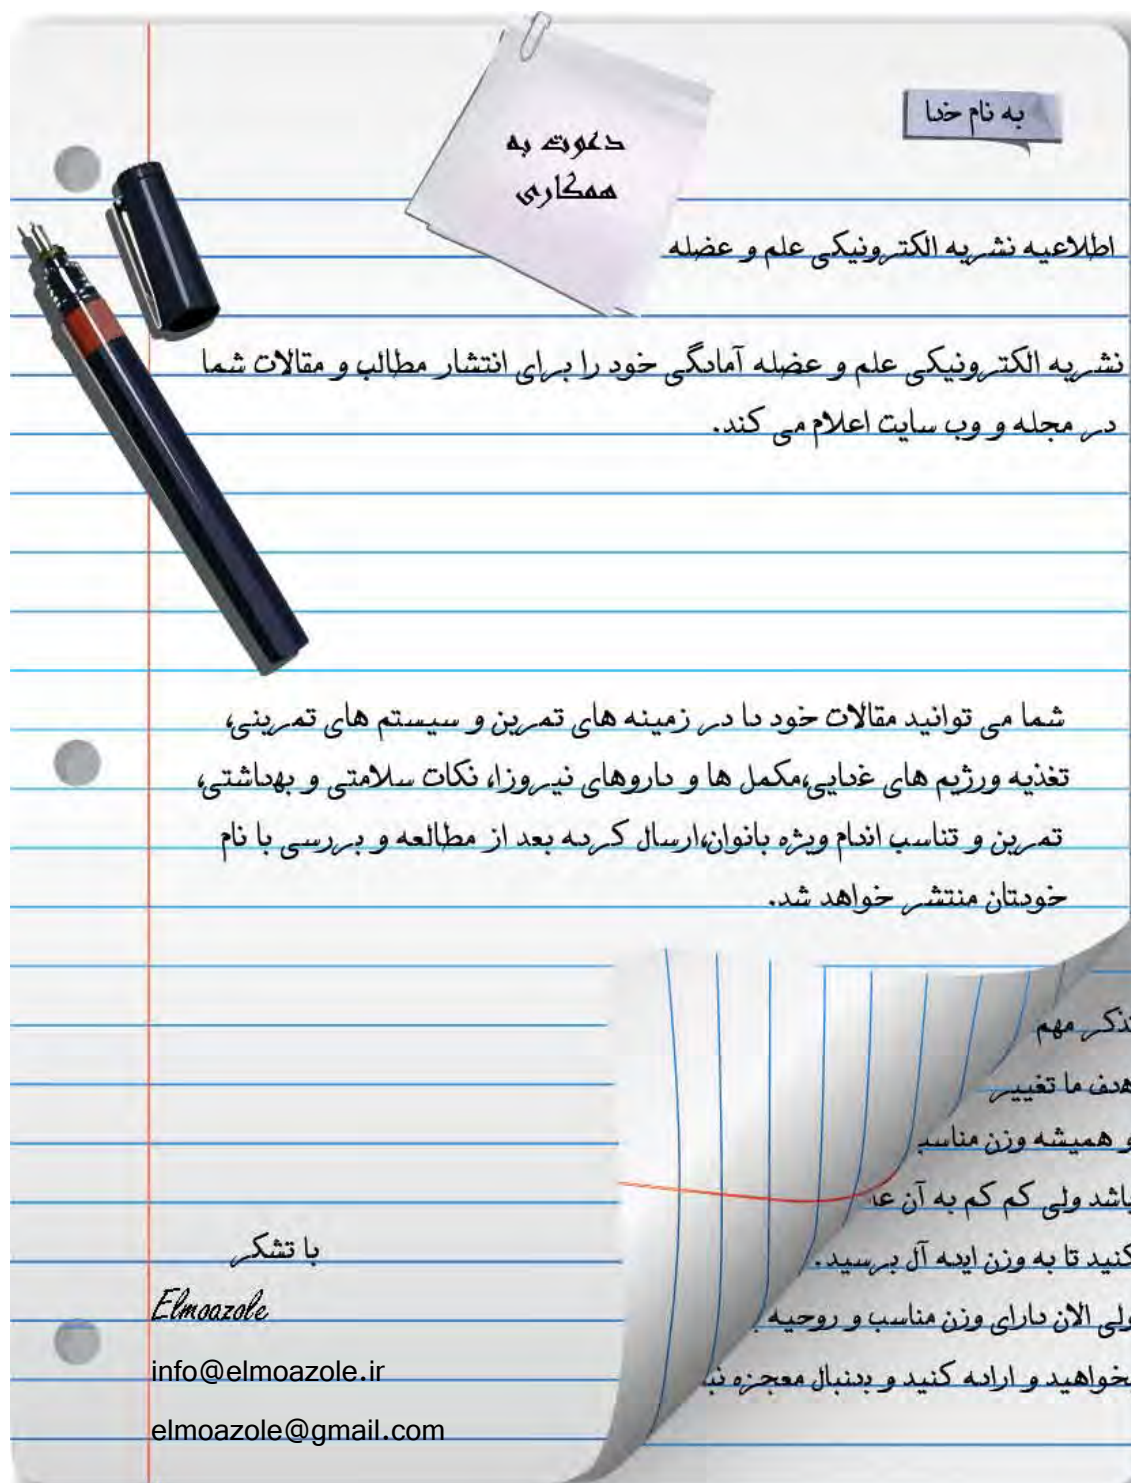 به نام خدا
دعوت به
همکاری
اطلاعیه نشریه الکترونیکی علم و عضله
نشریه الکترونیکی علم و عضله آمادگی خود را برای انتشار مطالب و مقالات شما
در مجله و وب سایت اعلام می کند.
شما می توانید مقالات خود را در زمینه های تمرین و سیستم های تمرینی،
تغذیه ورژیم های غدایی،مکمل ها و داروهای نیروزا، نکات سلامتی و بهداشتی،
تمرین و تناسب اندام ویژه بانوان،ارسال کرده بعد از مطالعه و بررسی با نام
خودتان منتشر خواهد شد.
تذکر مهم
هدف ما تغییر
و همیشه وزن مناسب
باشد ولی کم کم به آن
کنید تا به وزن ایده آل برسید.
ولی الان دارای وزن مناسب و روحیه
بخواهید و اراده کنید و بدنبال معجزه
با تشکر
Elmoazole
info@elmoazole.ir
elmoazole@gmail.com